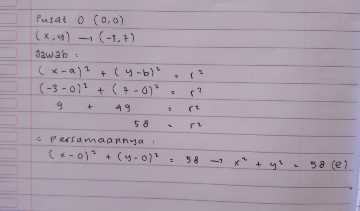 Pusat O (0,0)
(x,y) → (-3,7)
Jawab :
(x-a)² + (y-b)² = r²
(-3-0)² + (7-0)² = r²
9 + 49 = r²
58 = r²
∴ Persamaannya :
(x-0)² + (y-0)² = 58 → x² + y² = 58 (e)